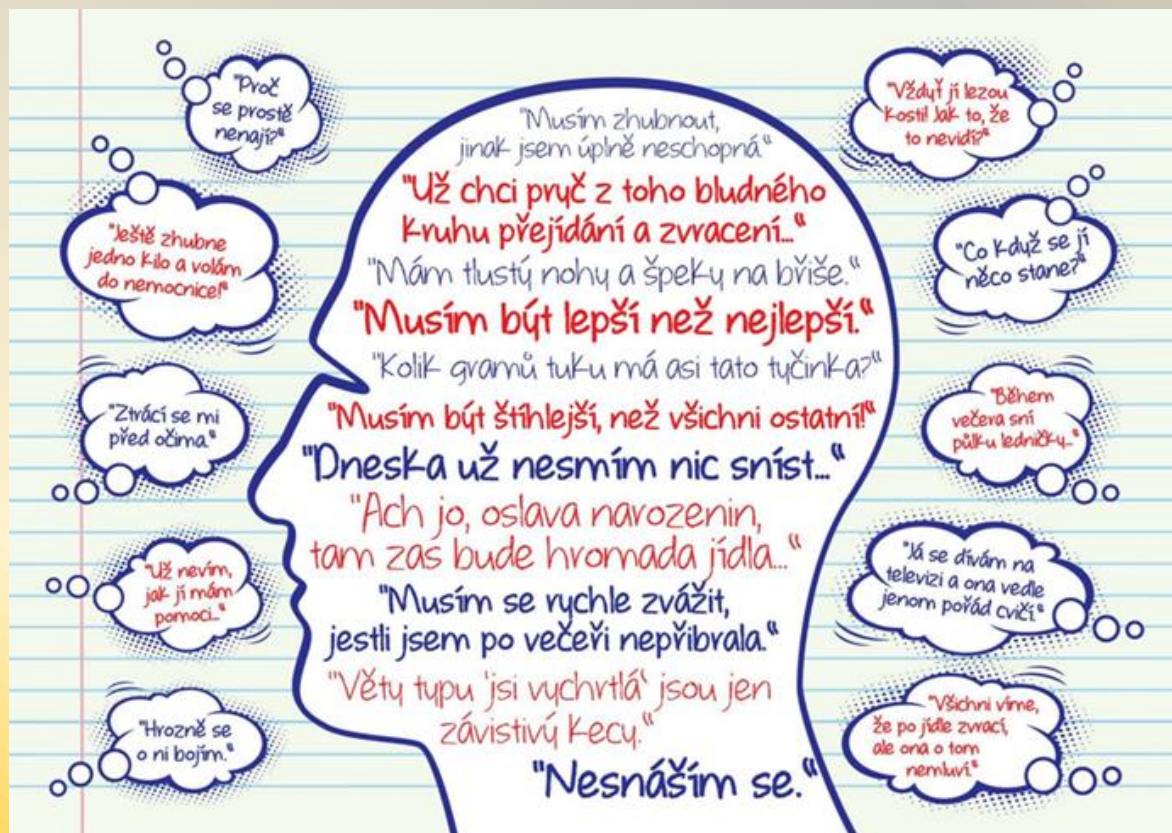 "Proč
se prostě
nenají?"
"Ještě zhubne
jedno kilo a volám
do nemocnice!"
"Ztrácí se mi
před očima."
"Už nevím,
jak jí mám
pomoci..."
"Hrozně se
o ni bojím."
"Musím zhubnout,
jinak jsem úplně neschopná."
"Už chci pryč z toho bludného
kruhu přejídání a zvracení..."
"Mám tlustý nohy a špeky na břiše."
"Musím být lepší než nejlepší."
"Kolik gramů tuku má asi tato tyčinka?"
"Musím být štíhlejší, než všichni ostatní!"
"Dneska už nesmím nic sníst..."
"Ach jo, oslava narozenin,
tam zas bude hromada jídla..."
"Musím se rychle zvážit,
jestli jsem po večeři nepřibrala."
"Věty typu 'jsi vychrtlá' jsou jen
závistivý kecy."
"Nesnáším se."
"Vždyť jí lezou
kosti! Jak to, že
to nevidí?"
"Co když se jí
něco stane?"
"Během
večera sní
půlku ledničky..."
"Já se dívám na
televizi a ona vedle
jenom pořád cvičí."
"Všichni víme,
že po jídle zvrací,
ale ona o tom
nemluví."